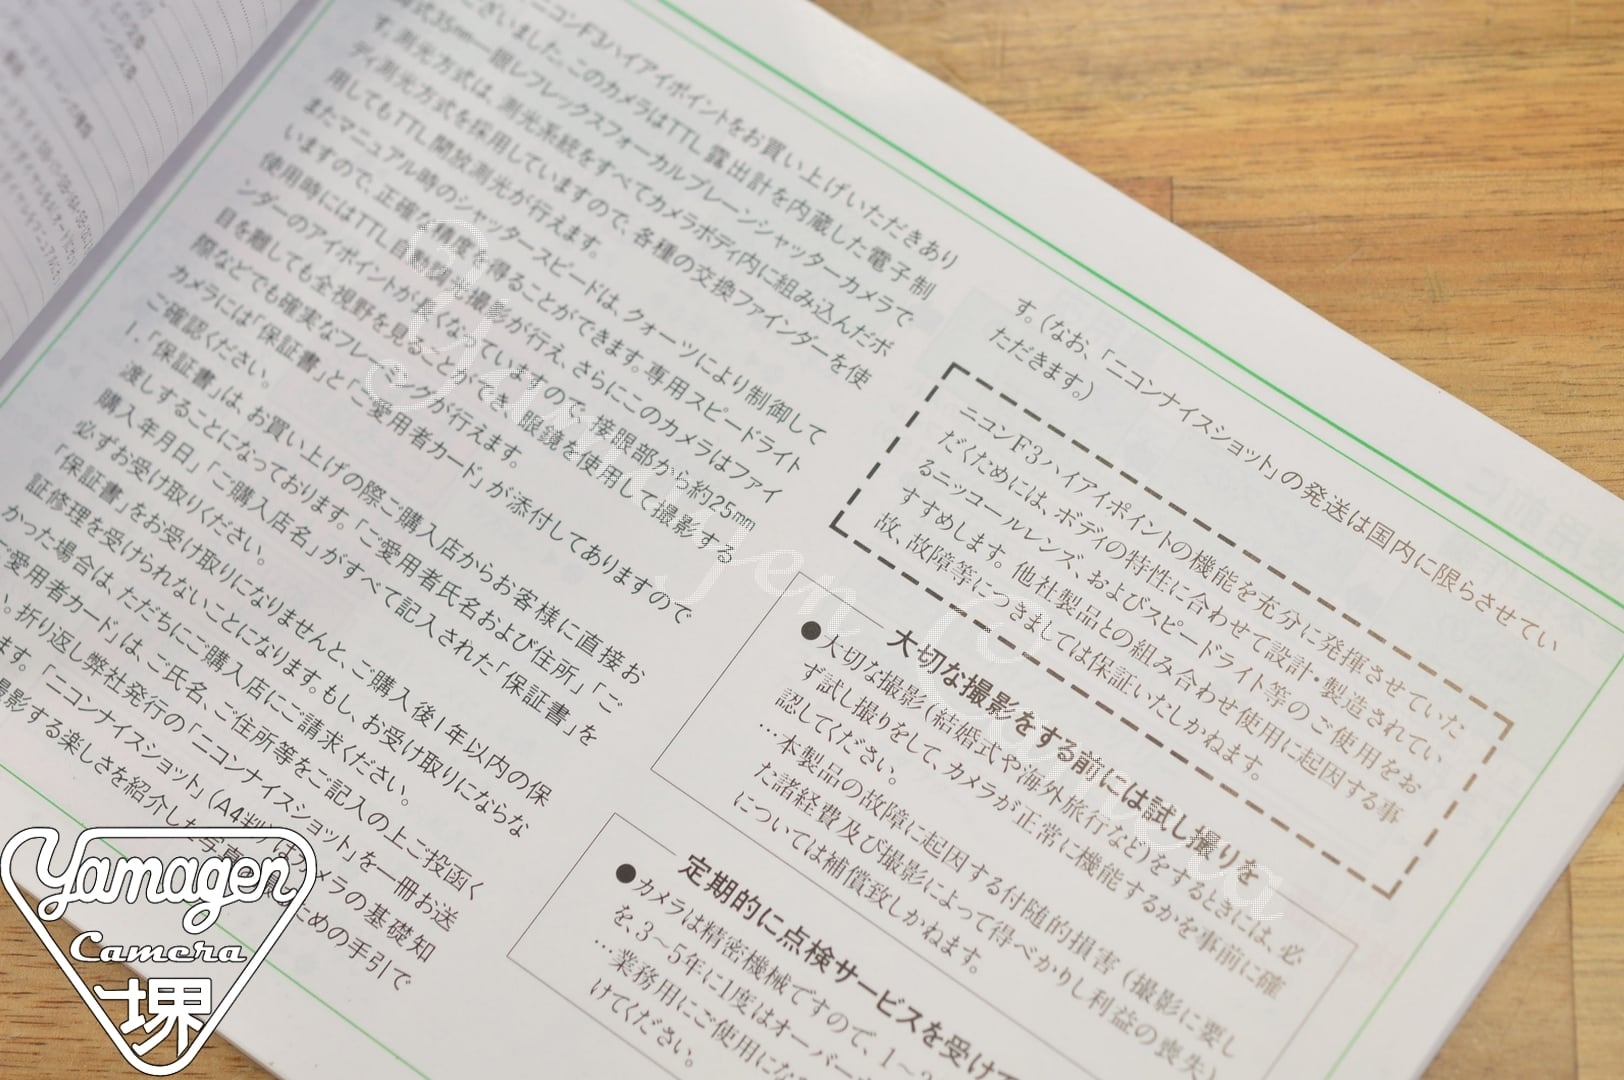 ニコンF3ハイアイポイントをお買い上げいただきあり
ございました。このカメラはTTL露出計を内蔵した電子制
御式35mm一眼レフレックスフォーカルプレーンシャッターカメラで
す。測光方式は、測光系統をすべてカメラボディ内に組み込んだボ
ディ測光方式を採用していますので、各種の交換ファインダーを使
用してもTTL開放測光が行えます。
またマニュアル時のシャッタースピードは、クォーツにより制御して
いますので、正確な精度を得ることができます。専用スピードライト
使用時にはTTL自動調光撮影が行え、さらにこのカメラはファイ
ンダーのアイポイントが長くなっていますので、接眼部から約25mm
目を離しても全視野を見ることができ、眼鏡を使用して撮影する
際などでも確実なフレーミングが行えます。
カメラには「保証書」と「ご愛用者カード」が添付してありますので
ご確認ください。
1.「保証書」は、お買い上げの際ご購入店からお客様に直接お
渡しすることになっております。「ご愛用者氏名および住所」「ご
購入年月日」「ご購入店名」がすべて記入された「保証書」を
必ずお受け取りください。
「保証書」をお受け取りになりませんと、ご購入後1年以内の保
証修理を受けられないことになります。もし、お受け取りにならな
かった場合は、ただちにご購入店にご請求ください。
ご愛用者カード」は、ご氏名、ご住所等をご記入の上ご投函く
。折り返し弊社発行の「ニコンナイスショット」を一冊お送
ます。「ニコンナイスショット」(A4判)はカメラの基礎知
撮影する楽しさを紹介した写真
ための手引で
す。(なお、「ニコンナイスショット」の発送は国内に限らさせてい
ただきます。)
ニコンF3ハイアイポイントの機能を充分に発揮させていた
だくためには、ボディの特性に合わせて設計・製造されてい
るニッコールレンズ、およびスピードライト等のご使用をお
すすめします。他社製品との組み合わせ使用に起因する事
故、故障等につきましては保証いたしかねます。
大切な撮影をする前には試し撮りを
●大切な撮影(結婚式や海外旅行など)をするときには、必
ず試し撮りをして、カメラが正常に機能するかを事前に確
認してください。
…本製品の故障に起因する付随的損害(撮影に要し
た諸経費及び撮影によって得べかりし利益の喪失)
については補償致しかねます。
定期的に点検サービスを受けて
●カメラは精密機械ですので、1〜
を、3〜5年に1度はオーバー
…業務用にご使用にな
けてください。
Yamagen Camera
Yamagen
Camera
堺